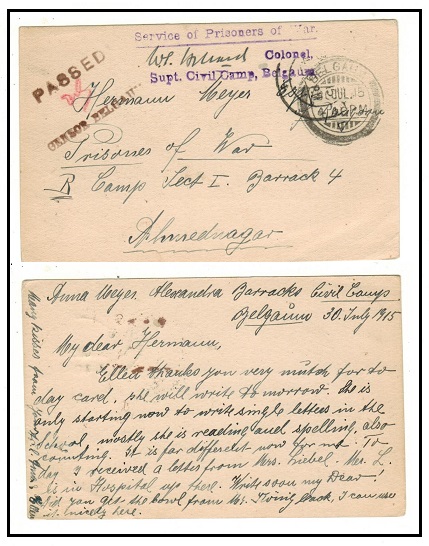 Service of Prisoners of War.
PASSED
Colonel,
Supt. Civil Camp, Belgaum
BELGAUM
CENSOR BELGAUM
Hermann Meyer
Prisoner of War
R Camp Sect I. Barrack 4
Ahmednagar
Anna Meyer, Alexandra Barracks Civil Camp
Belgaum 30. July 1915
My dear Hermann,
Ellen thanks you very mutch for to
day card, she will write to morrow. She is
only starting now to write single letters in the
school, mostly she is reading and spelling, also
counting. It is far different now for me. To
day I received a letter from Mrs. Liebel. Mr. L.
is in Hospital up there. Write soon my Dear!
Did you get the bowl from Mr. back, I can use
it nicely here.
Many kisses from your